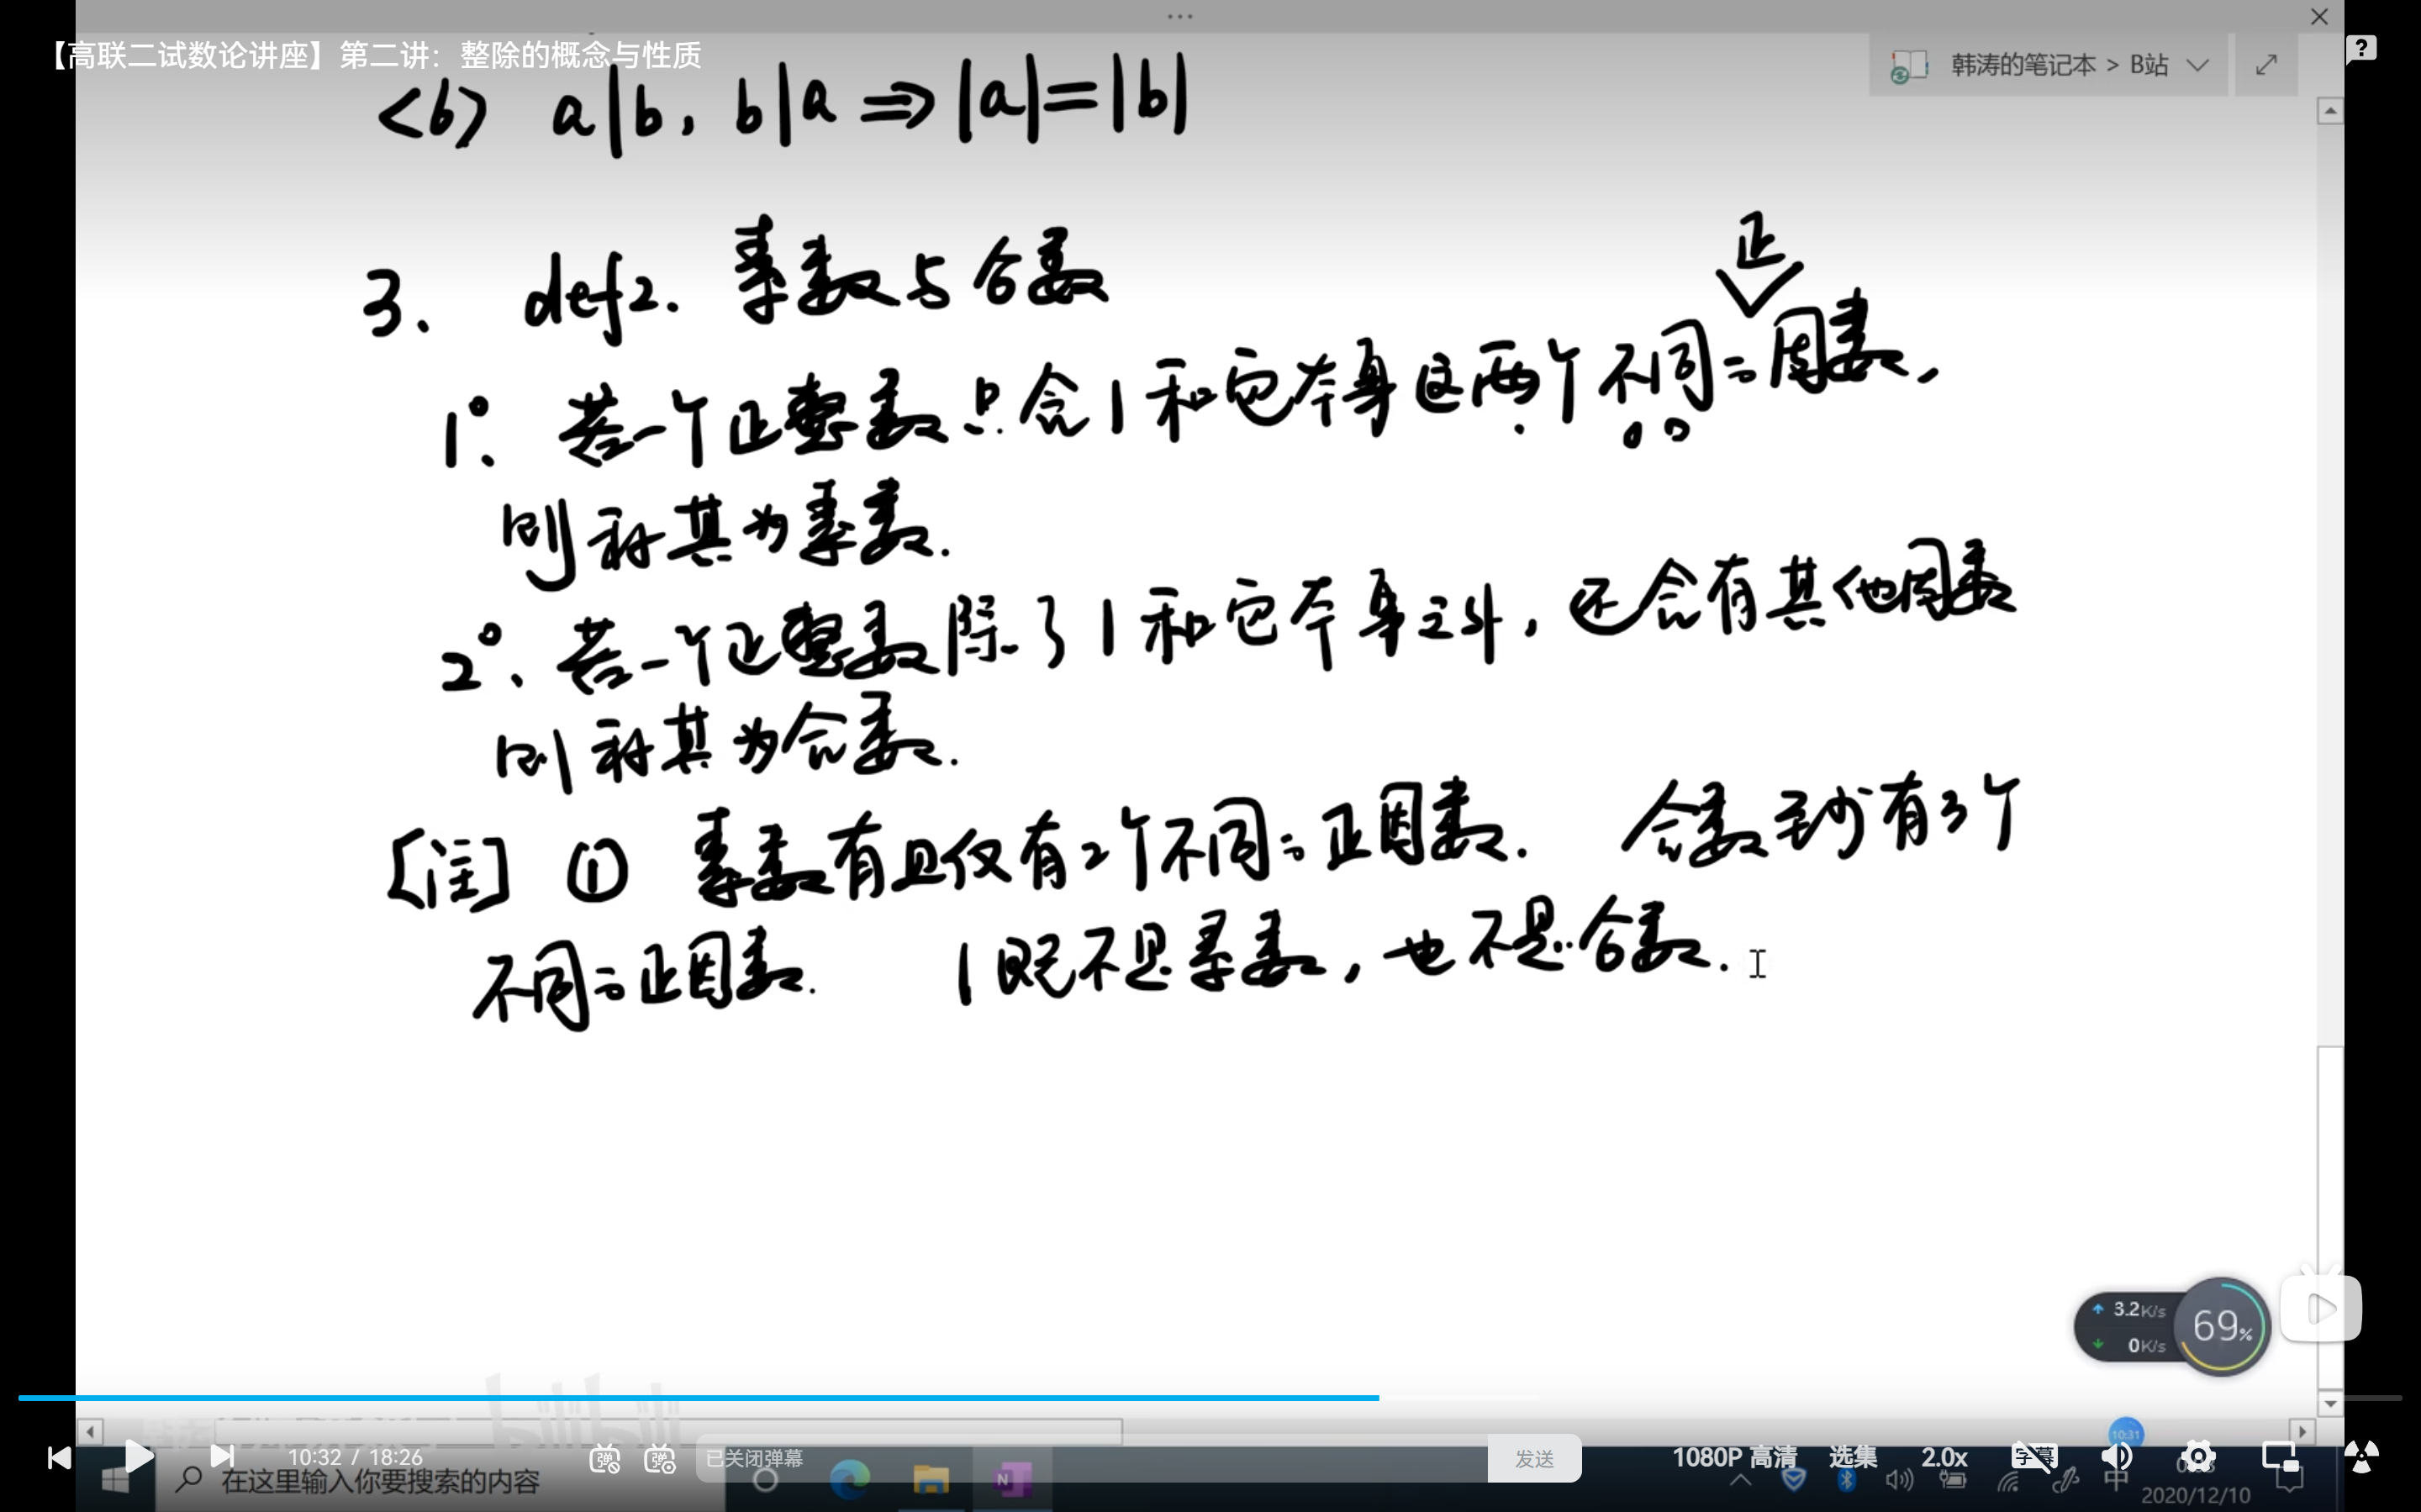 【高联二试数论讲座】第二讲：整除的概念与性质
韩涛的笔记本 > B站
<6> a|b, b|a ⇒ |a|=|b|
3、 def2. 素数与合数
正
1°、若一个正整数只含1和它本身这两个不同的因数,
则称其为素数.
2°、若一个正整数除了1和它本身之外, 还含有其他因数
则称其为合数.
[注] ① 素数有且仅有2个不同的正因数. 合数至少有3个
不同的正因数. 1既不是素数, 也不是合数.
3.2K/s
0K/s
69%
bilibili
10:31
10:32 / 18:26
已关闭弹幕
发送
1080P 高清
选集
2.0x
字幕
在这里输入你要搜索的内容
中
2020/12/10